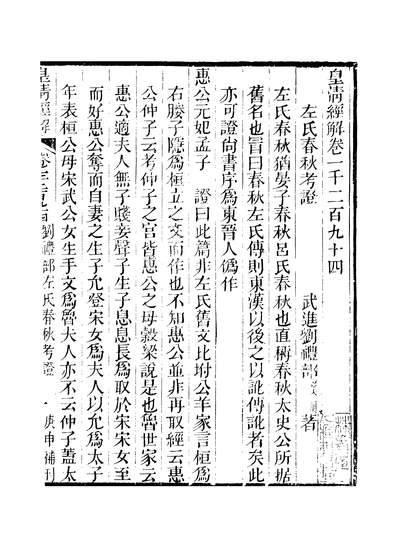 皇清經解卷一千二百九十四
左氏春秋考證
武進劉禮部著
左氏春秋猶晏子春秋呂氏春秋也直稱春秋太史公所据
舊名也言曰春秋左氏傳則東漢以後之以訛傳訛者矣此
亦可證尚書序爲東晉人僞作
惠公元妃孟子 證曰此篇非左氏舊文比坿公羊家言桓爲
右媵子隱爲桓立之文而作也不知惠公並非再取經云惠
公仲子云考仲子之宮皆惠公之母穀梁說是也魯世家云
惠公適夫人無子賤妾聲子生子息息長爲取於宋宋女至
而好惠公奪而自妻之生子允登宋女爲夫人以允爲太子
年表桓公母宋武公女生手文爲魯夫人亦不云仲子蓋太
皇清經解
劉禮部左氏春秋考證
一
庚申補刊